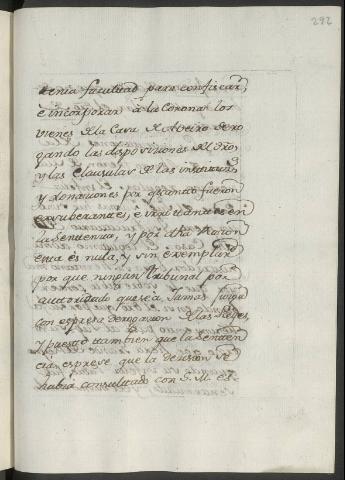 292
tenia facultad para confiscar,
e incorporar à la Corona los
vienes de la Casa de Aveiro dero
gando las disposiciones del dro
y las clausulas de las
y donaciones por quanto fueron
exsuberantes, è en
la Sentencia, y por otra razon
esta es nula, y sin exemplar
por que ningun tribunal por
autorizado que sea, Jamas juzga
con expresa derogacion de las Leyes,
y puesto tambien que la senten
cia exprese que la decision se
havia consultado con S. M. el